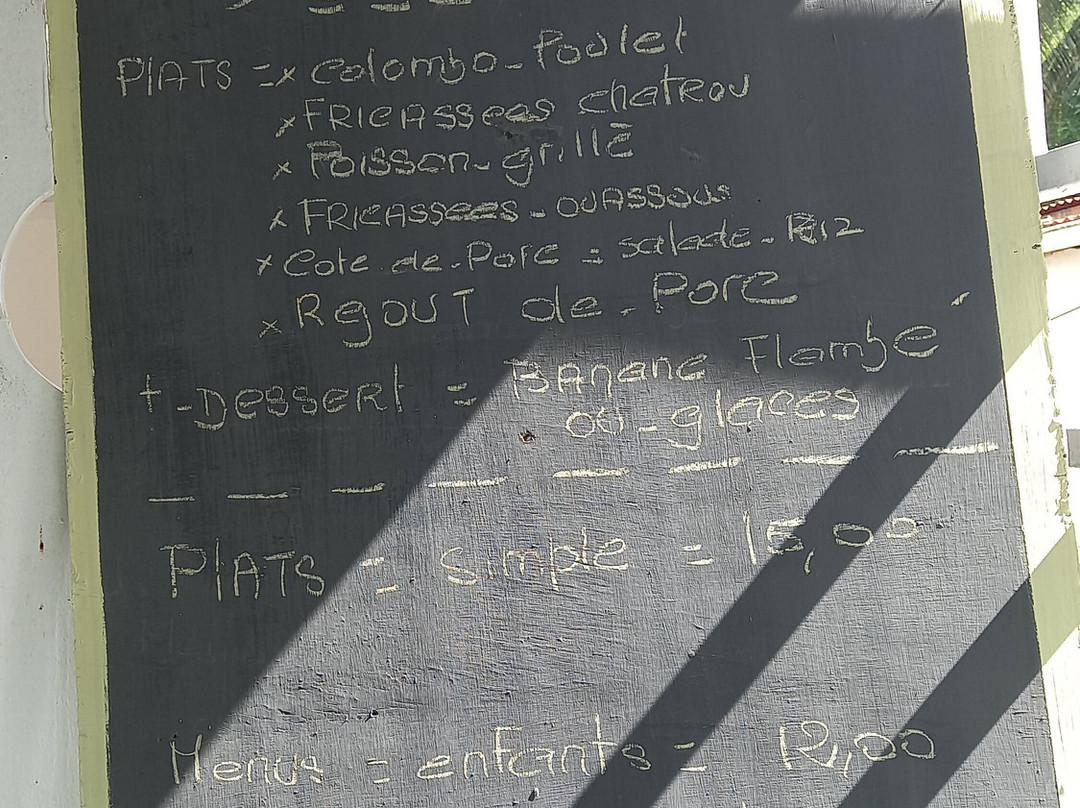 PLATS = x Colombo - Poulet
x FRICASSEES chatrou
x Poisson - grillé
x FRICASSEES - OUASSOUS
x Cote - de - Porc = salade - Riz
x RgOUT de - Porc
+ - Dessert = BANANE Flambé
ou - glaces
PLATS = simple = 15,00
Menus = enfants = 12,00